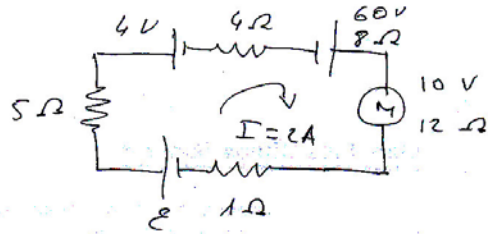 4V 4Ω 60V
8Ω
5Ω I=2A M 10 V
12 Ω
ε 1Ω